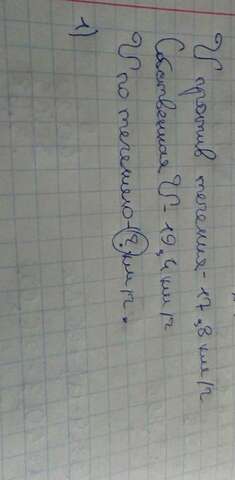 V против течения - 17,8 км/ч
Собственная V - 19,4 км/ч
V по течению - ? км/ч.
1)